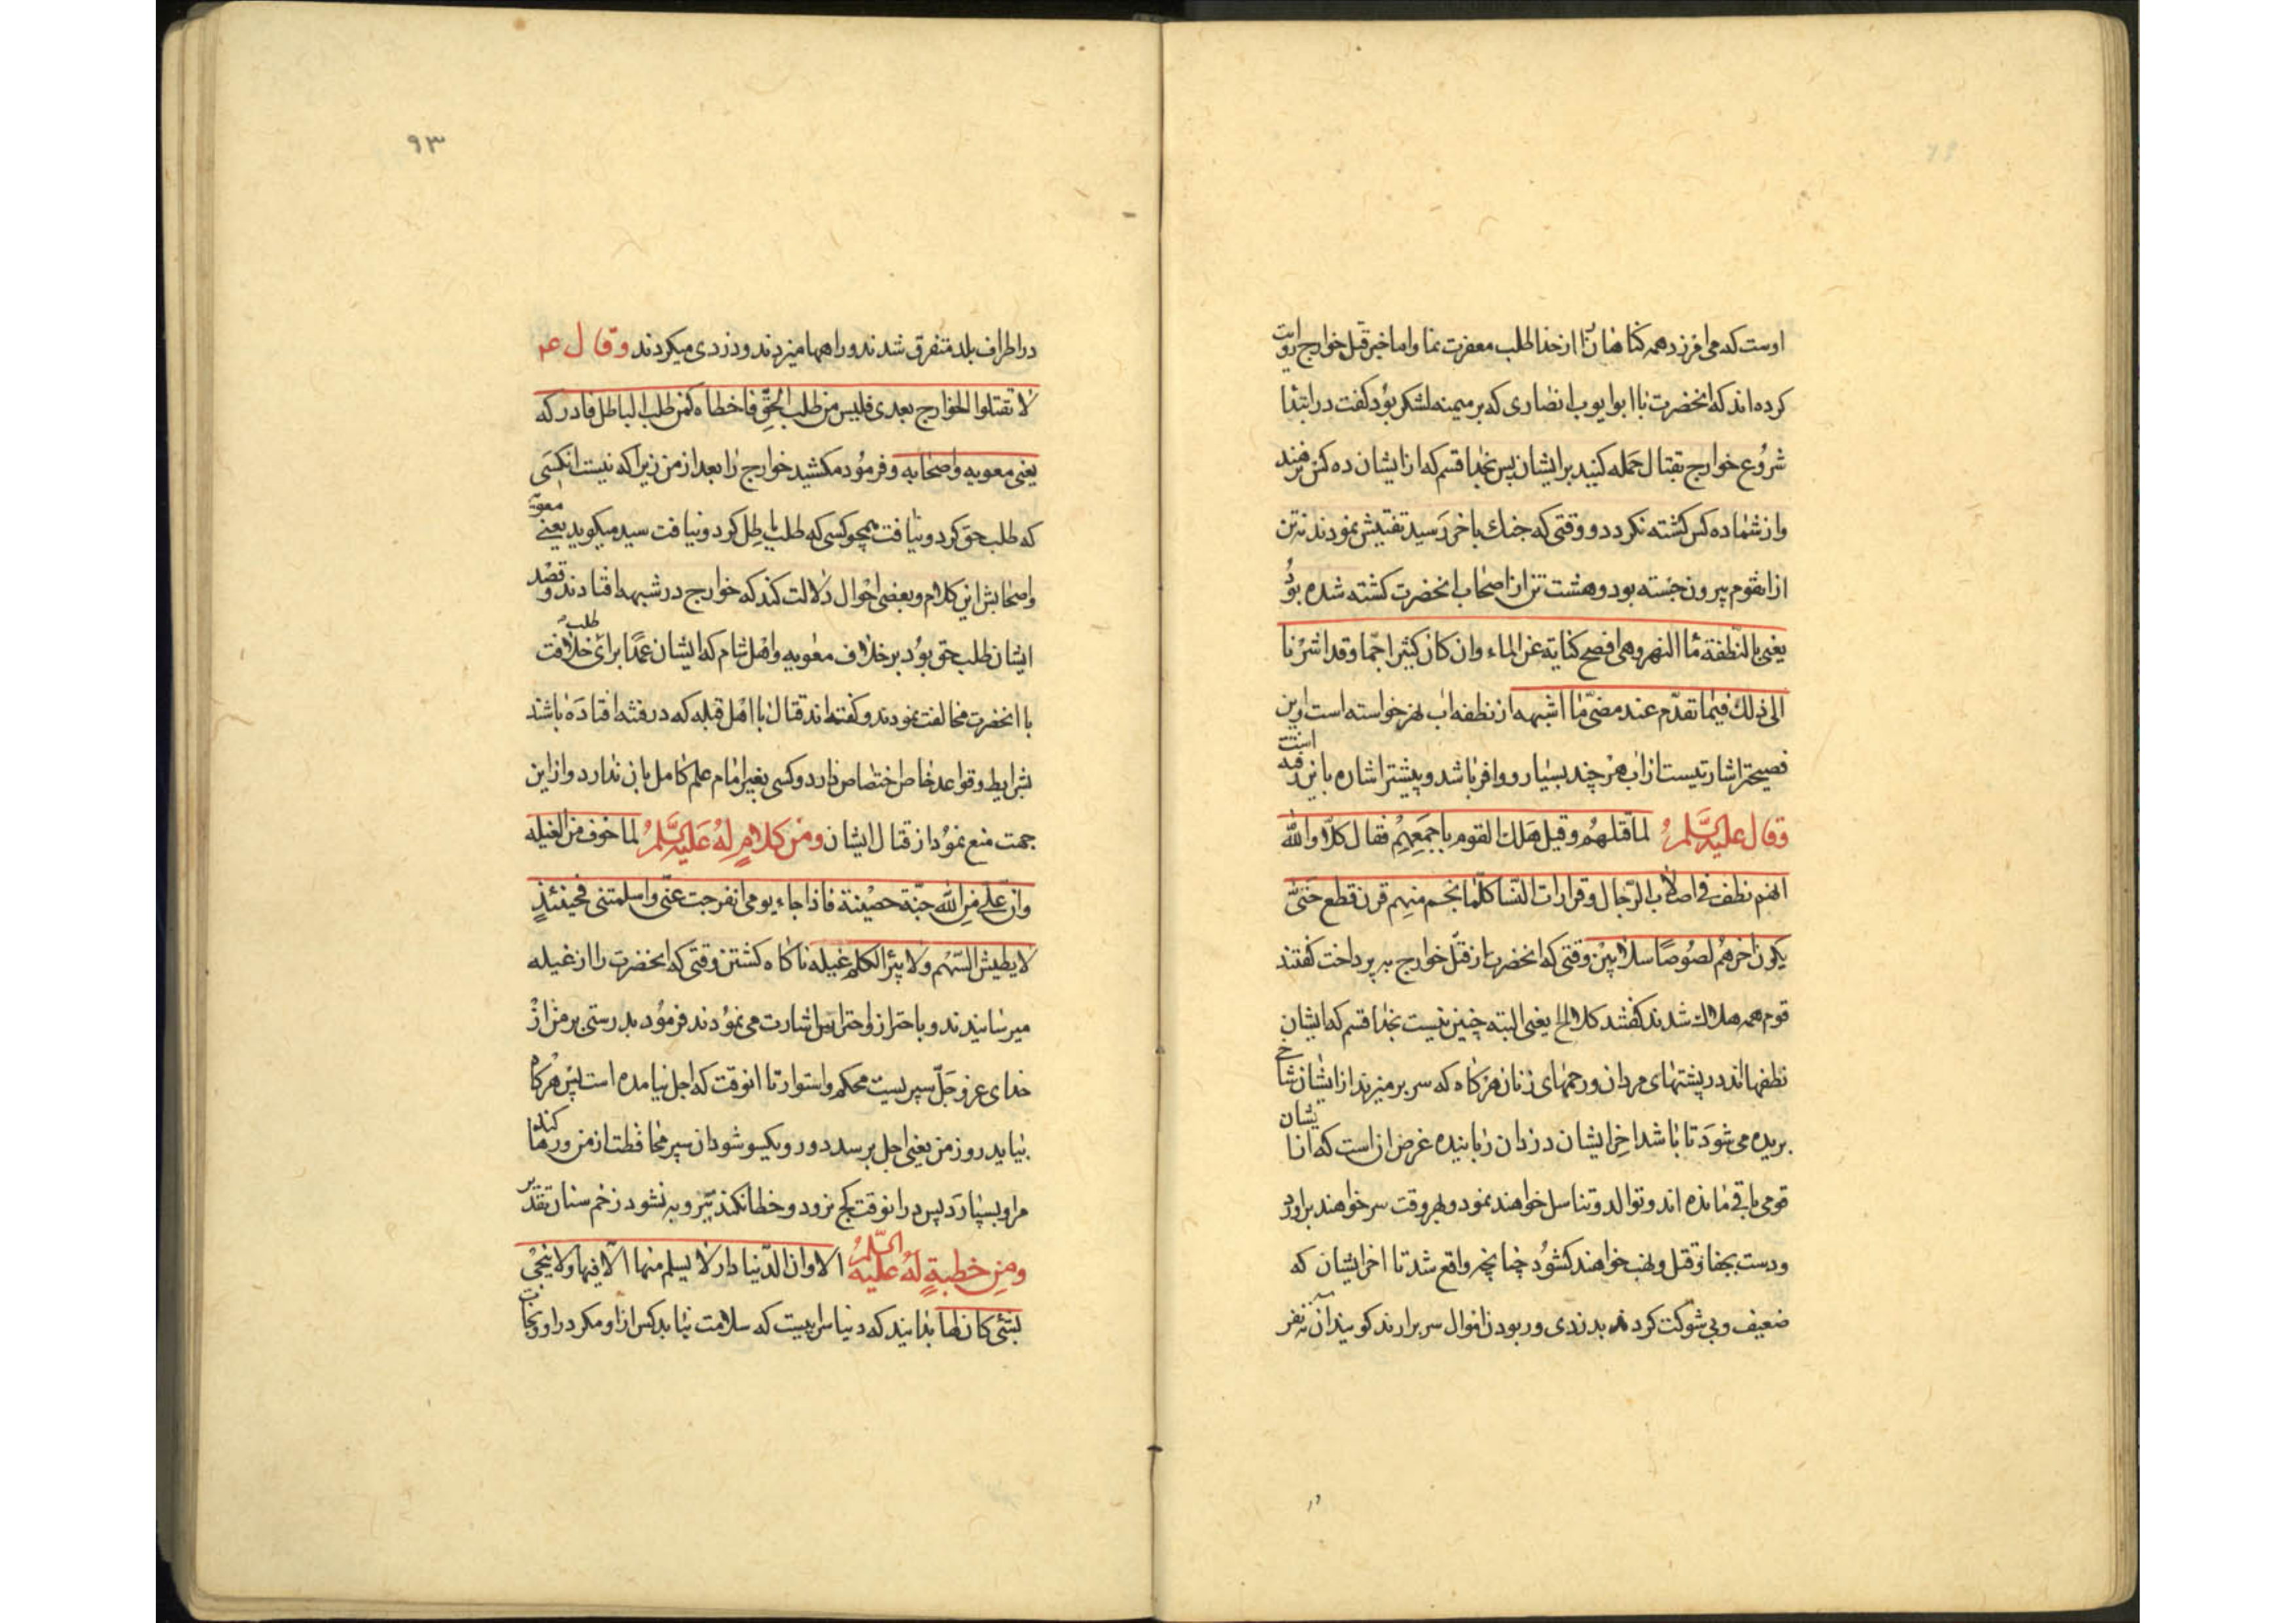 اوست که می افرزد همه کناهان را از خدا طلب مغفرت نما واما خبر قبل خوارج روایت
کرده اند که انحضرت با ابوایوب انصاری که بر میمنه لشکر بود کفت در ابتدا
شروع خوارج بقتال حمله کنید بر ایشان پس بخدا قسم که از ایشان ده کس نرهند
واز شما ده کس کشته نکردد و وقتی که جنك باخر رسید تفتیش نمودند نه تن
از انقوم بیرون جسته بود و هشت تن از اصحاب انحضرت کشته شده بود
یعنی بالنطفة ماء النهر وهی افصح کنایة عن الماء وان کان کثیرا جما وقد اشرنا
الی ذلك فیما تقدم عند مضی ما اشبهه از نطفه اب نهر خواسته است واین
فصیحتر اشارتیست از اب هر چند بسیار و وافر باشد و پیشتر اشاره باین رفته است
وقال علیه السلم لما قتلهم وقیل هلك القوم باجمعهم فقال کلا والله
انهم نطف فی اصلاب الرجال وقرارات النسا کلما نجم منهم قرن قطع حتی
یکون اخرهم لصوصا سلابین وقتی که انحضرت از قتل خوارج به پرداخت کفتند
قوم همه هلاك شدند کفتند کلا الخ یعنی البته چنین نیست بخدا قسم که ایشان
نطفها اند در پشتهای مردان و رحمهای زنان هر کاه که سر بر میزند از ایشان شاخ
بریده می شود تا باشد اخر ایشان دزدان ربایندہ غرض ان است که از ایشان
قومی باقی مانده اند و توالد و تناسل خواهند نمود و بهر وقت سر خواهند براورد
ودست بجفا و قتل و نهب خواهند کشود چنانچه واقع شد تا اخر ایشان که
ضعیف وبی شوکت کردند بدزدی و ربودن اموال سر برارند کویند ان نه نفر
۹۳
در اطراف بلد متفرق شدند و راهها میزدند و دزدی میکردند وقال عم
لا تقتلوا الخوارج بعدی فلیس من طلب الحق فاخطاه کمن طلب الباطل فادرکه
یعنی معویه واصحابه و فرمود مکشید خوارج را بعد از من زیرا که نیست انکسی
که طلب حق کرد و نیافت همچو کسی که طلب باطل کرد و نیافت سید میکوید یعنی معویه
واصحابش این کلام و بعضی احوال دلالت کند که خوارج در شبهه افتادند و قصد
ایشان طلب حق بود بر خلاف معویه واهل شام که ایشان عمدا برای طلب خلافت
با انحضرت مخالفت نمودند و کفته اند قتال با اهل قبله که در فتنه افتاده باشند
بشرایط و قواعد خاص اختصاص دارد و کسی بغیر امام علم کامل بان ندارد و از این
جهت منع نمود از قتال ایشان ومن کلام له علیه السلم لما خوف من الغیله
وان علی من الله جنة حصینة فاذا جاء یومی انفرجت عنی واسلمتنی فحینئذ
لا یطیش السهم ولا یبرا الکلم غیله ناکاه کشتن وقتی که انحضرت را از غیله
میرسانیدند و باحتراز واحتراس اشارت می نمودند فرمود بدرستی بر من از
خدای عز وجل سپریست محکم واستوار تا انوقت که اجل نیامده است پس هرکاه
بیاید روز من یعنی اجل برسد دور ویکسو شود ان سپر محافظت از من و رها کند
مرا و بسپارد پس در انوقت کج نرود و خطا نکند تیر و به نشود زخم سنان تقدیر
ومن خطبة له علیه السلم الا وان الدنیا دار لا یسلم منها الا فیها ولا ینجی
بشئی کان لها بدانید که دنیا سراییست که سلامت نیابد کس از او مکر در او ونجات